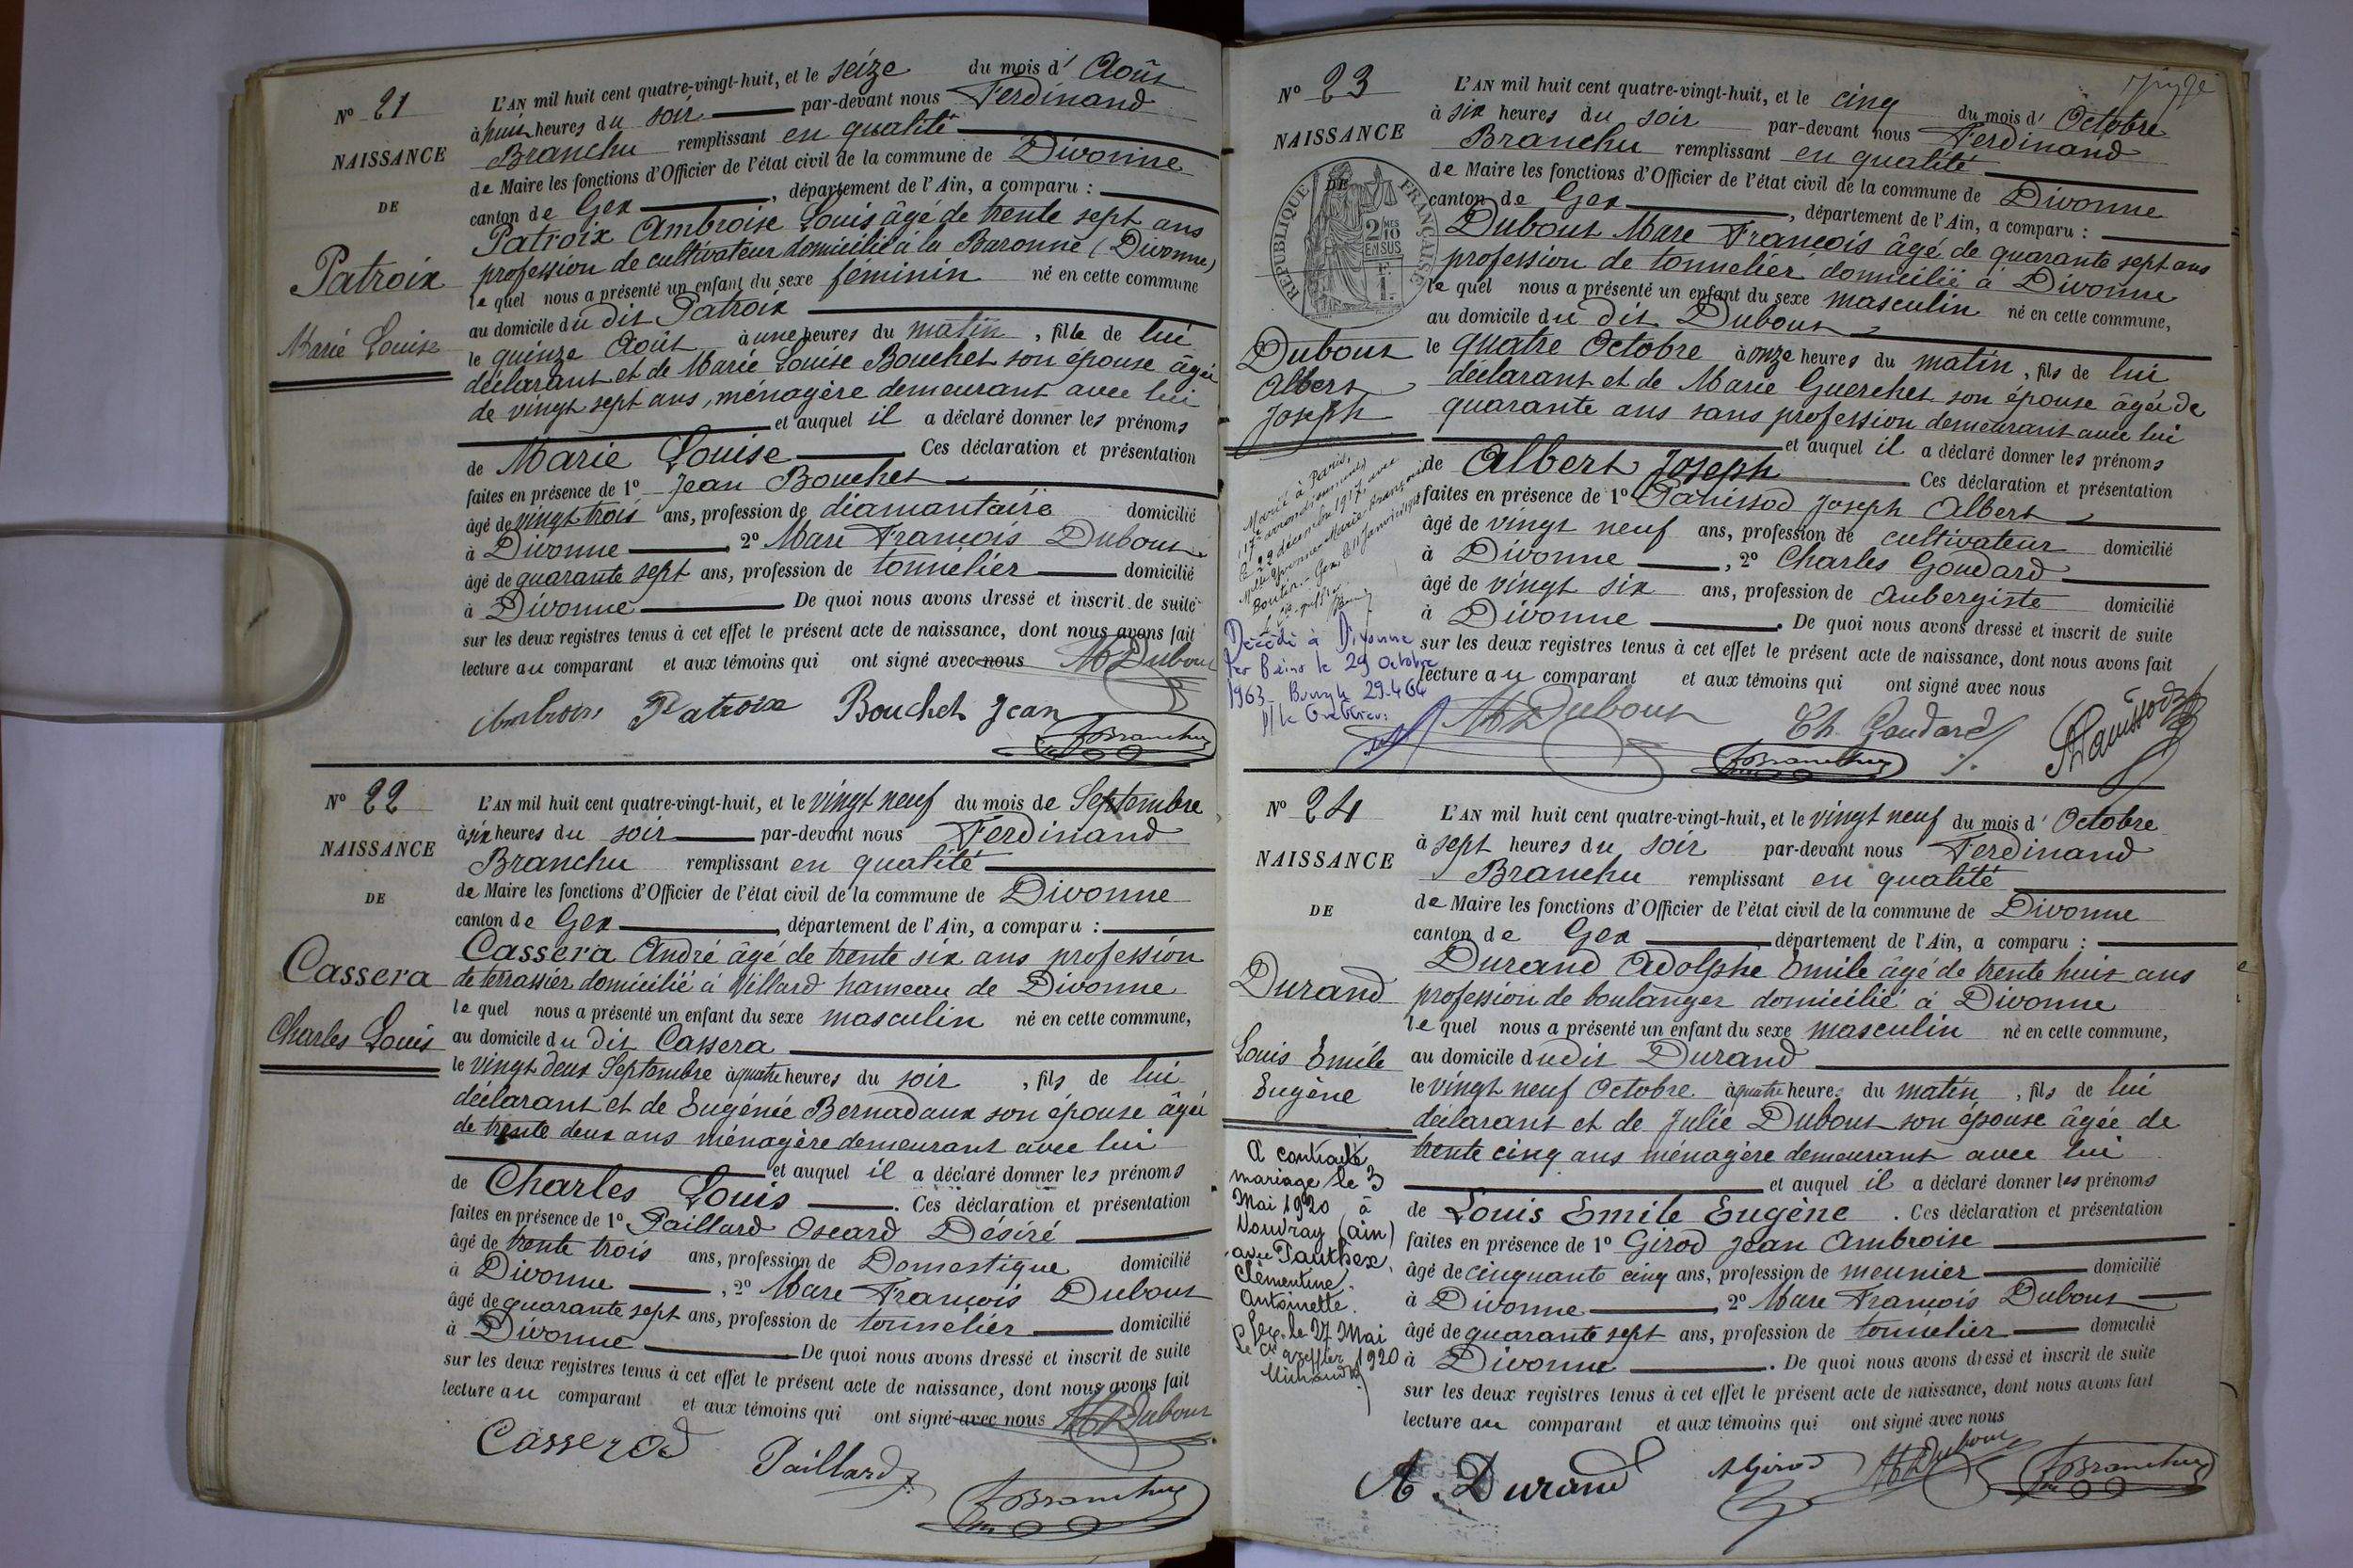 N° 21
NAISSANCE
DE
Patroix
Marie Louise
L'AN mil huit cent quatre-vingt-huit, et le seize du mois d' Août
à huit heures du soir par-devant nous Ferdinand
Branchu remplissant en qualité
de Maire les fonctions d'Officier de l'état civil de la commune de Divonne
canton de Gex, département de l'Ain, a comparu :
Patroix Ambroise Louis âgé de trente sept ans
profession de cultivateur domicilié à la Baronne (Divonne)
le quel nous a présenté un enfant du sexe féminin né en cette commune
au domicile du dit Patroix
le quinze Août à une heures du matin, fille de lui
déclarant et de Marie Louise Bouchet son épouse âgée
de vingt sept ans, ménagère demeurant avec lui
et auquel il a déclaré donner les prénoms
de Marie Louise. Ces déclaration et présentation
faites en présence de 1° Jean Bouchet
âgé de vingt trois ans, profession de diamantaire domicilié
à Divonne, 2° Marc François Dubout
âgé de quarante sept ans, profession de tonnelier domicilié
à Divonne De quoi nous avons dressé et inscrit de suite
sur les deux registres tenus à cet effet le présent acte de naissance, dont nous avons fait
lecture au comparant et aux témoins qui ont signé avec nous Dubout
Patroix Bouchet Jean
Branchu
N° 22
NAISSANCE
DE
Cassera
Charles Louis
L'AN mil huit cent quatre-vingt-huit, et le vingt neuf du mois de Septembre
à six heures du soir par-devant nous Ferdinand
Branchu remplissant en qualité
de Maire les fonctions d'Officier de l'état civil de la commune de Divonne
canton de Gex, département de l'Ain, a comparu :
Cassera André âgé de trente six ans profession
de terrassier domicilié à Villard hameau de Divonne
le quel nous a présenté un enfant du sexe masculin né en cette commune,
au domicile du dit Cassera
le vingt deux Septembre à quatre heures du soir, fils de lui
déclarant et de Eugénie Bernadaux son épouse âgée
de trente deux ans ménagère demeurant avec lui
et auquel il a déclaré donner les prénoms
de Charles Louis. Ces déclaration et présentation
faites en présence de 1° Paillard Oscard Désiré
âgé de trente trois ans, profession de Domestique domicilié
à Divonne, 2° Marc François Dubout
âgé de quarante sept ans, profession de tonnelier domicilié
à Divonne De quoi nous avons dressé et inscrit de suite
sur les deux registres tenus à cet effet le présent acte de naissance, dont nous avons fait
lecture au comparant et aux témoins qui ont signé avec nous Dubout
Paillard
Branchu
N° 23
NAISSANCE
DE
RÉPUBLIQUE FRANÇAISE
2/10 EN SUS
Dubout
Albert
Joseph
Marié à Paris,
(17e arrondissement)
le 29 décembre 1917, avec
Melle Yvonne Marie Françoise
Boutin. Gex le 11 Janvier 1918
Décédé à Divonne
les Bains le 29 octobre
1963
L'AN mil huit cent quatre-vingt-huit, et le cinq du mois d' Octobre
à six heures du soir par-devant nous Ferdinand
Branchu remplissant en qualité
de Maire les fonctions d'Officier de l'état civil de la commune de Divonne
canton de Gex, département de l'Ain, a comparu :
Dubout Marc François âgé de quarante sept ans
profession de tonnelier domicilié à Divonne
le quel nous a présenté un enfant du sexe masculin né en cette commune,
au domicile du dit Dubout
le quatre Octobre à onze heures du matin, fils de lui
déclarant et de Marie Guerchet son épouse âgée de
quarante ans sans profession demeurant avec lui
et auquel il a déclaré donner les prénoms
de Albert Joseph Ces déclaration et présentation
faites en présence de 1° Panissod Joseph Albert
âgé de vingt neuf ans, profession de cultivateur domicilié
à Divonne, 2° Charles Goudard
âgé de vingt six ans, profession de Aubergiste domicilié
à Divonne. De quoi nous avons dressé et inscrit de suite
sur les deux registres tenus à cet effet le présent acte de naissance, dont nous avons fait
lecture au comparant et aux témoins qui ont signé avec nous
Dubout Ch. Goudard
Branchu
N° 24
NAISSANCE
DE
Durand
Louis Emile
Eugène
A contracté
mariage le 3
Mai 1920 à
Vouvray (ain)
avec Pauthex
Clémentine
Antoinette.
Gex, le 27 Mai
1920
L'AN mil huit cent quatre-vingt-huit, et le vingt neuf du mois d' Octobre
à sept heures du soir par-devant nous Ferdinand
Branchu remplissant en qualité
de Maire les fonctions d'Officier de l'état civil de la commune de Divonne
canton de Gex département de l'Ain, a comparu :
Durand Adolphe Emile âgé de trente huit ans
profession de boulanger domicilié à Divonne
le quel nous a présenté un enfant du sexe masculin né en cette commune,
au domicile dudit Durand
le vingt neuf Octobre à quatre heures du matin, fils de lui
déclarant et de Julie Dubout son épouse âgée de
trente cinq ans ménagère demeurant avec lui
et auquel il a déclaré donner les prénoms
de Louis Emile Eugène. Ces déclaration et présentation
faites en présence de 1° Girod Jean Ambroise
âgé de cinquante cinq ans, profession de meunier domicilié
à Divonne 2° Marc François Dubout
âgé de quarante sept ans, profession de tonnelier domicilié
à Divonne. De quoi nous avons dressé et inscrit de suite
sur les deux registres tenus à cet effet le présent acte de naissance, dont nous avons fait
lecture au comparant et aux témoins qui ont signé avec nous
A. Durand Girod Dubout Branchu